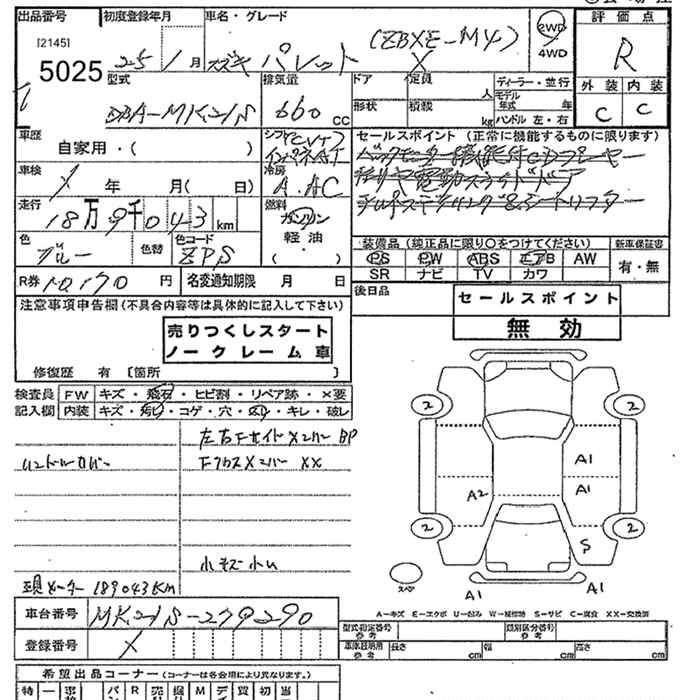 出品番号 初度登録年月 車名・グレード 評価点
[2145]
5025
25年 1月 スズキ パレット X (ZBXE-M4) 2WD 4WD R
型式 排気量 ドア 定員 人 ディーラー・並行 外装 内装
DBA-MK21S 660 cc 形状 積載 kg モデル年式 年 ハンドル 左・右 C C
車歴 自家用・( ) シフト (CVT) インパネAT セールスポイント (正常に機能するものに限ります)
バックモニター CDプレーヤー
車検 X 年 月( 日) 冷房 A.AC
電動スライドドア
走行 18万9千043km 燃料 ガソリン 軽油・
色 ブルー 色替 色コード ZPS
装備品(純正品に限り○をつけてください) 新車保証書
PS PW ABS エアB AW 有・無
SR ナビ TV カワ
R券 10,170円 名変通知期限 月 日
後日品 セールスポイント
無効
注意事項申告欄(不具合内容等は具体的に記入して下さい)
売りつくしスタート
ノークレーム車
修復歴 有 [箇所 ]
検査員 FW キズ・飛石・ヒビ割・リペア跡・×要
記入欄 内装 キズ・汚れ・コゲ・穴・・キレ・破レ
左右Fサイドメンバー BP
Fクロスメンバー XX
2 2
A1
A2 A1
2 2
S
小キズ小凹
スペア A1 A1
現メーター 189043Km
A-キズ E-エクボ U-凹み W-補修跡 S-サビ C-腐食 XX-交換済
車台番号 MK21S-279290
登録番号 X
型式指定番号 参考 類別区分番号 参考
車体証明用 参考 長さ cm 幅 cm 高さ cm
希望出品コーナー(コーナーは各会場により異なります。)